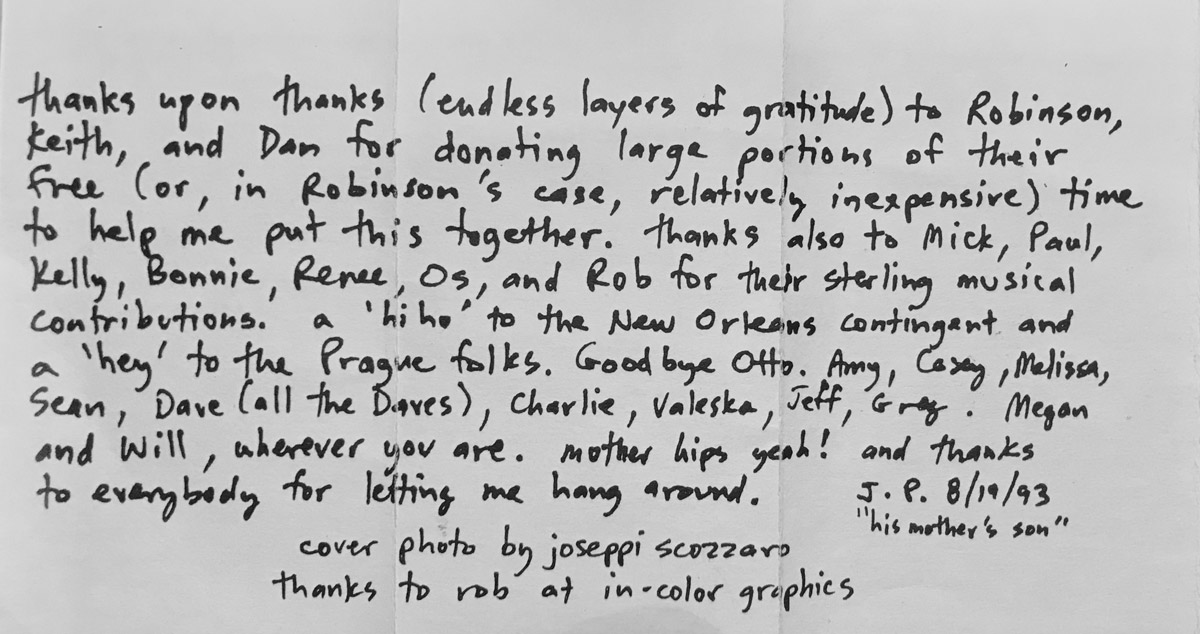 thanks upon thanks (endless layers of gratitude) to Robinson,
Keith, and Dan for donating large portions of their
free (or, in Robinson's case, relatively inexpensive) time
to help me put this together. thanks also to Mick, Paul,
Kelly, Bonnie, Renee, Os, and Rob for their sterling musical
contributions. a 'hi ho' to the New Orleans contingent and
a 'hey' to the Prague folks. Goodbye Otto. Amy, Casey, Melissa,
Sean, Dave (all the Daves), Charlie, Valeska, Jeff, Greg. Megan
and Will, wherever you are. mother hips yeah! and thanks
to everybody for letting me hang around. J. P. 8/19/93
"his mother's son"
cover photo by joseppi scozzaro
thanks to rob at in-color graphics